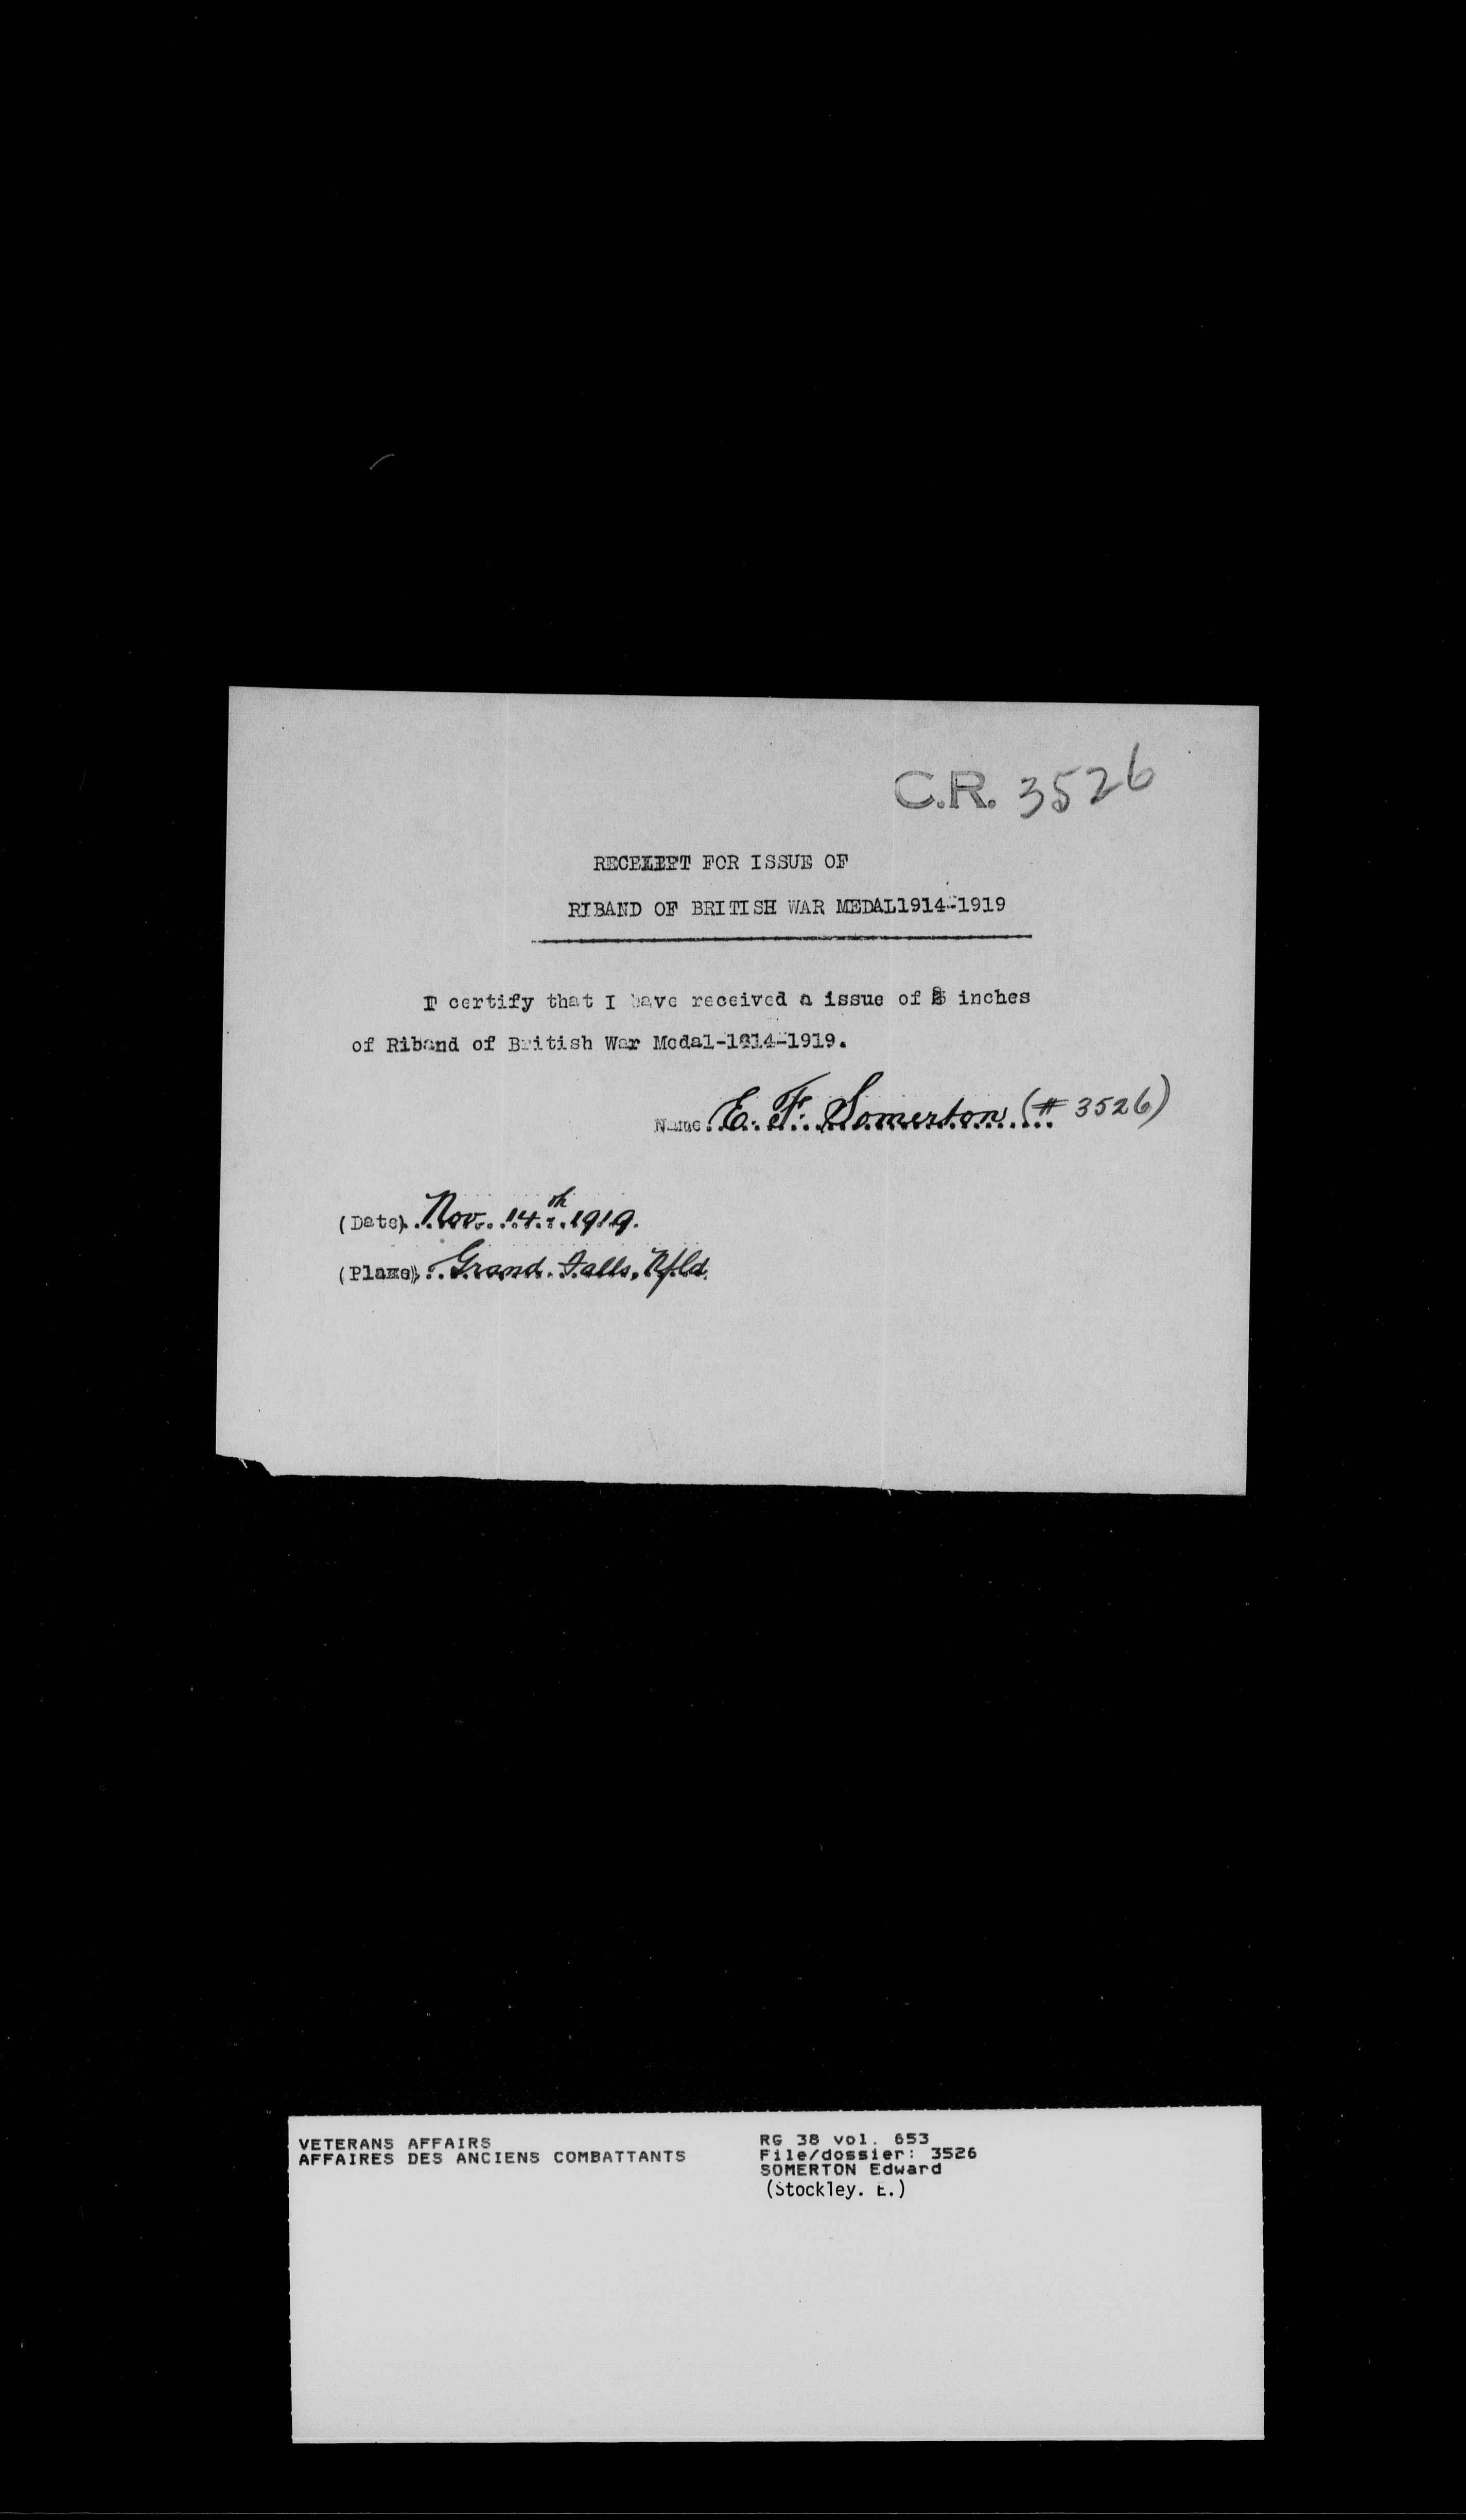 C.R. 3526
RECEIPT FOR ISSUE OF
RIBAND OF BRITISH WAR MEDAL1914-1919
I certify that I have received a issue of inches
of Riband of British War Medal-1914-1919.
Name. E. F. Somerton (# 3526)
(Date). Nov. 14th 1919.
(Place). Grand Falls, Nfld.
VETERANS AFFAIRS
AFFAIRES DES ANCIENS COMBATTANTS
RG 38 vol. 653
File/dossier: 3526
SOMERTON Edward
(Stockley. E.)